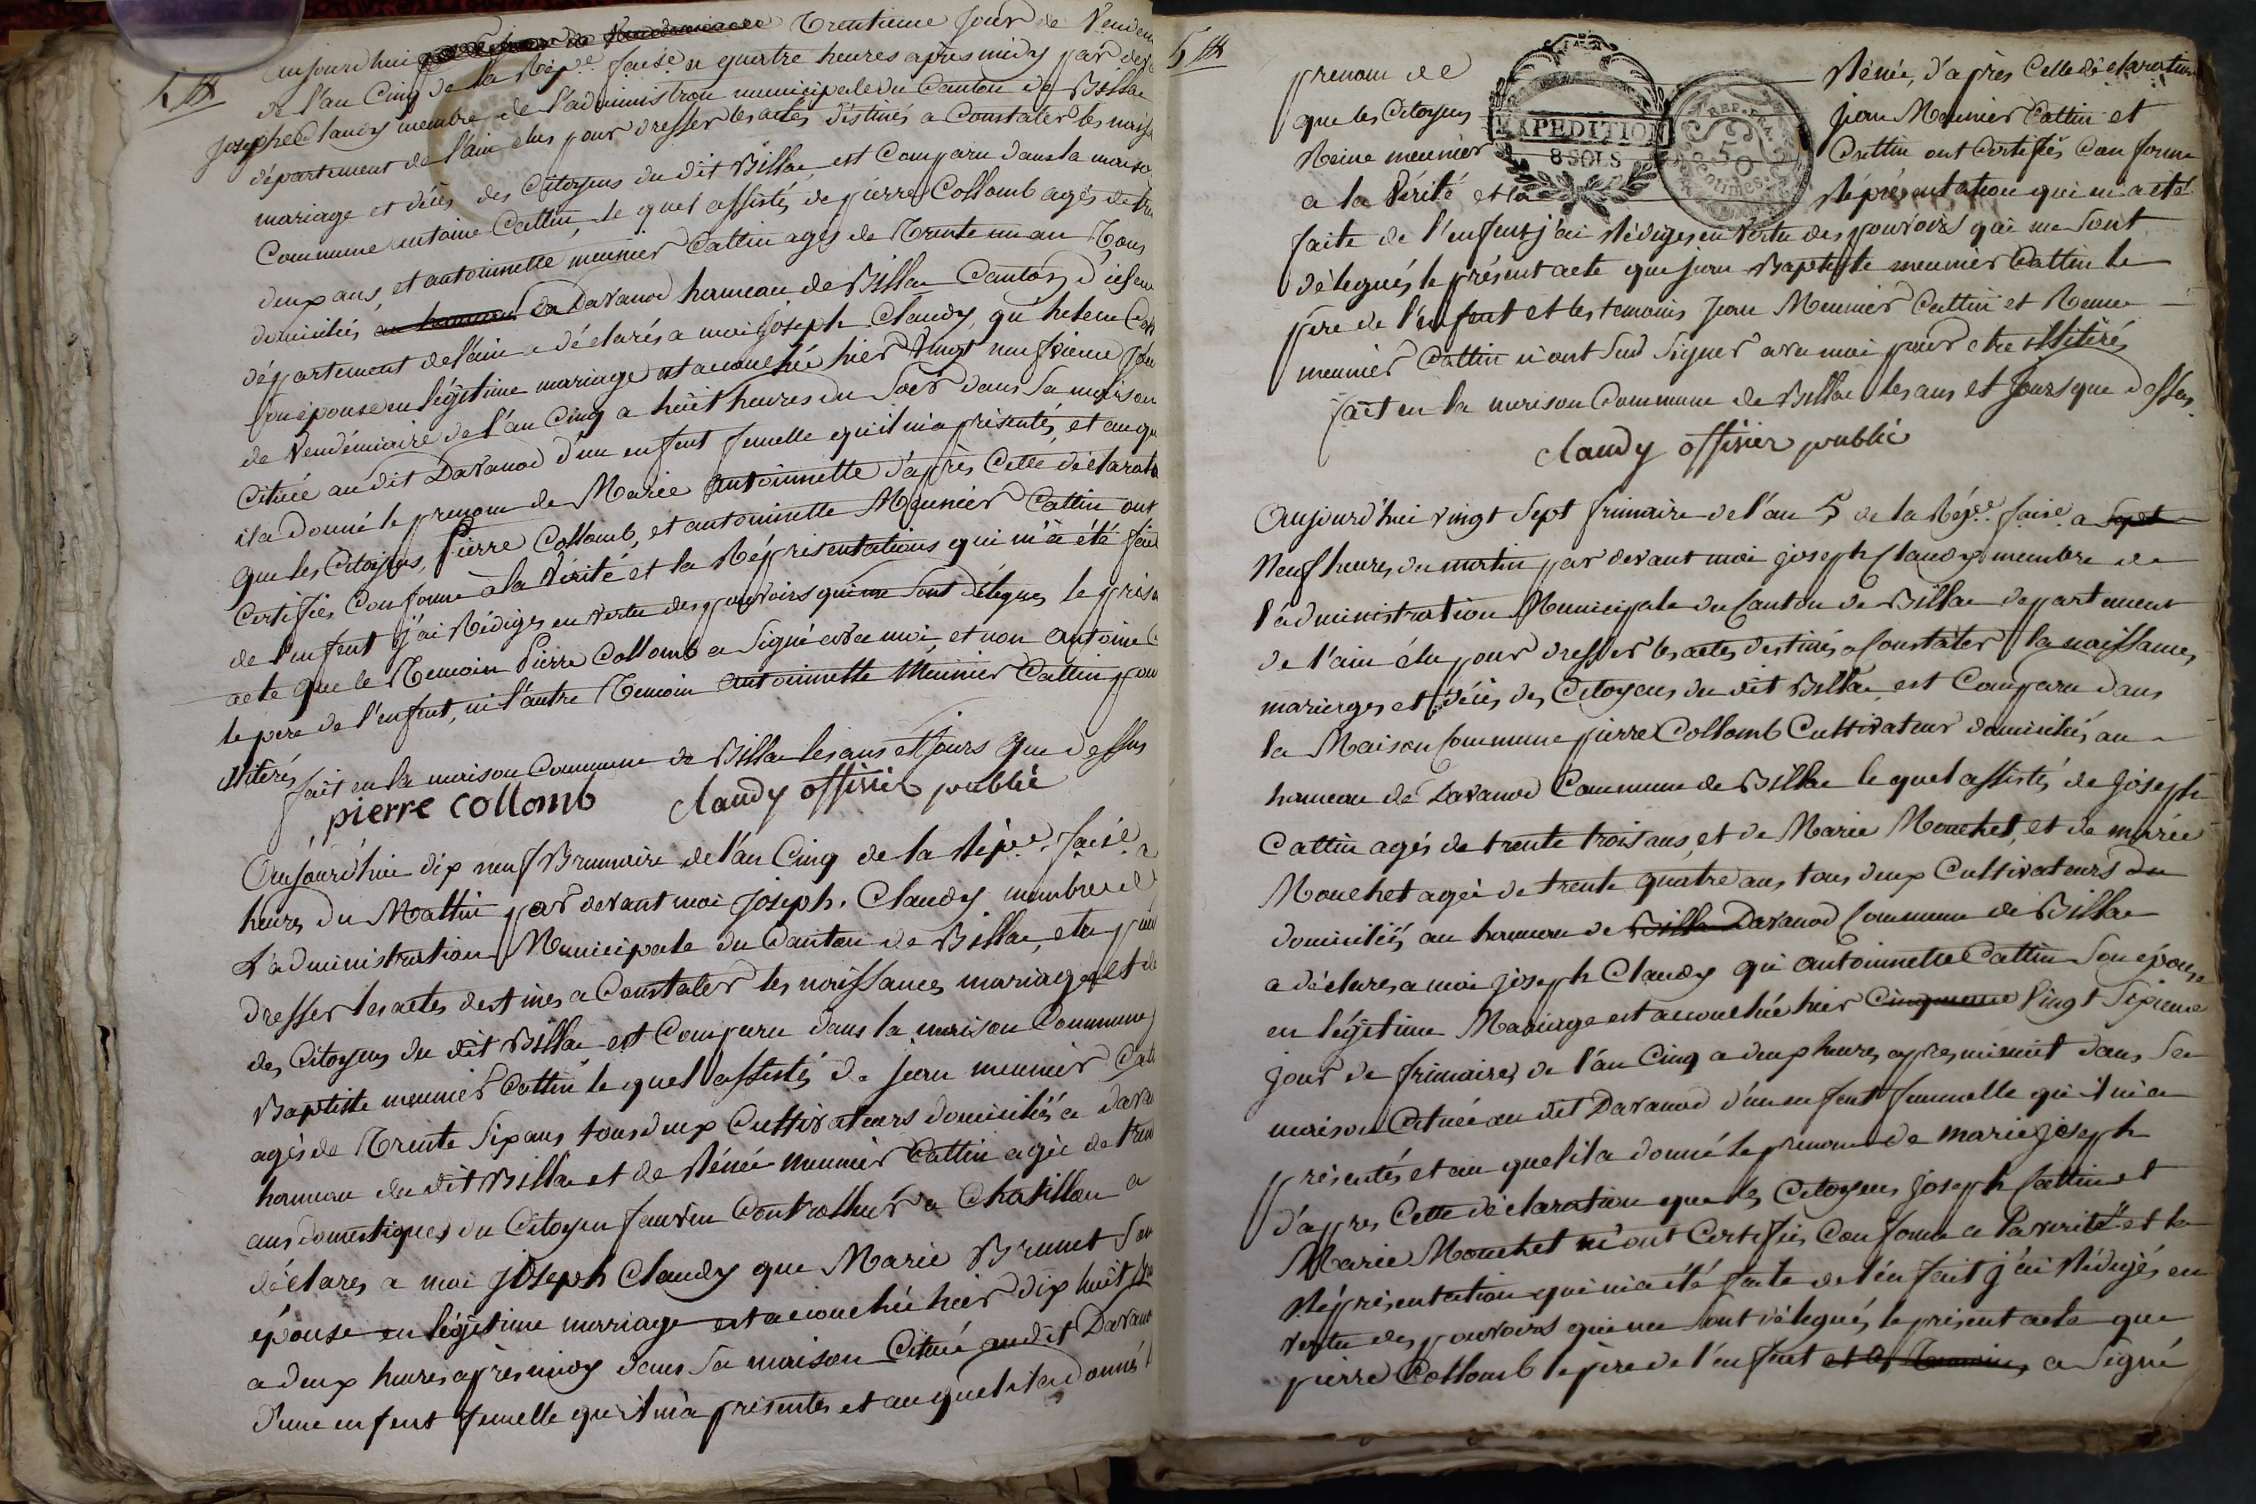 5 m
aujourd'hui Trentieme jour de Vendem
de l'an Cinq de la Rép.e faise a quatre heures apres midy par dev
joseph Claudy membre de l'administraon municipale du Canton de Billa
département de l'ain elus pour dresser les actes destinés a Constater les naiss
mariage et décès des Citoyens du dit Billa, est Comparu dans la maiso
Commune antoine Cattin, le quel assistés de pierre Collomb agés de tre
deux ans, et antoinnette meunier Cattin agés de Trente un an Tous
domiciliés au hameau Da Davanod hameau de Billa Canton d'icel
département de l'ain a déclarés a moi joseph Claudy, qu'helene
son épouse en légitime mariage est accouchée hier Vingt neufvieme jou
de Vendémiaire de l'an Cinq a huit heures du Soir dans Sa maison
Cituée au dit Davanod d'un enfent femelle qu'il m'a présentés, et auqu
il a donné le prenom de Marie antoinnette d'après Cette déclarati
que les Citoyens, Pierre Collomb, et antoinnette Meunier Cattin ont
Certifiés Conforme à la Vérité et la Réprésentations qui m'a été fai
de l'enfent j'ai Rédigés en vertu des pouvoirs qui me sont délegués le prése
acte que le Temoin Pierre Collomb a Signé avec moi, et non antoine C
le pere de l'enfent, ni l'autre Temoin antoinnette Meunier Cattin pou
illiterés
fait en la maison Commune de Billa les ans et jours que dessus
pierre collomb claudy offisier publié
Aujourd'hui dix neuf Brumaire de l'an Cinq de la Rép.e faise a
heures du Mattin par devant moi joseph Claudy membre de
L'administration Municipale du Canton de Billa, elu pour
dresser les actes destinés a Constater les naissances mariages et de
des Citoyens du dit Billa est Comparu dans la maison Commune
Baptiste meunier Cattin le quel assistés de jean meunier Catt
agés de Trente Six ans tous deux Cultivateurs domiciliés a dava
hameau du dit Billa et de Rénée meunier Cattin agée de tren
ans domestiques du Citoyen favre Controlleur a Chatillon a
déclarés a moi joseph Claudy que Marie Brunet Son
épouse en légitime mariage est accouchée hier dix huit
a deux heures après midy dans Sa maison Cituée au dit Davano
d'une enfent femelle qu'il m'a présentés et au quel il a donné l
5 m
prenom de Rénée, d'après Cette déclaration
que les Citoyens jean Meunier Cattin et
Reine meunier Cattin ont Certifiés Conforme
a la Vérité et la Réprésentation qui m'a eté
EXPEDITION
8 SOLS
50
Centimes
faite de l'enfent j'ai Rédigés en Vertu des pouvoirs qui me Sont
délegués le présent acte que jean Baptiste meunier Cattin le
père de l'enfent et les temoins jean Meunier Cattin et Renee
meunier Cattin n'ont Sus Signer avec moi pour etre illitérés
fait en la maison Commune de Billa les ans et jours que dessus
claudy offisier publié
Aujourd'hui vingt Sept frimaire de l'an 5 de la Rép.e faise a Sept
Neuf heures du matin par devant moi joseph Claudy membre de
l'administration Municipale du Canton de Billa departement
de l'ain élu pour dresser les actes destinés a Constater la naissances,
mariages et décés des Citoyens du dit Billa est Comparu dans
la Maison Commune pierre Collomb Cultivateur domiciliés au
hameau de Davanod Commune de Billa le quel assistés de joseph
Cattin agés de trente trois ans, et de Marie Mouchet, et de marie
Mouchet agée de trente quatre ans tous deux Cultivateurs Du
domiciliés au hameau de Billa Davanod Commune de Billa
a déclarés a moi joseph Claudy qu'antoinnette Cattin Son épouse
en légitime Mariage est accouchée hier Cinquieme Vingt Sixieme
jour de frimaires de l'an Cinq a deux heures apres minuit dans Sa
maison Cituée au dit Davanod d'un enfent femmelle qu'il m'a
présentés et au quel il a donné le prenom de marie joseph
d'apres Cette déclaration que les Citoyens joseph Cattin et
Marie Mouchet m'ont Certifiés Conforme a la vérité et la
Réprésentation qui m'a été faite de l'enfait j'ai Rédigés en
vertu des pouvoirs qui me sont délegués le présent acte que
pierre Collomb le père de l'enfent et les Temoins a Signé